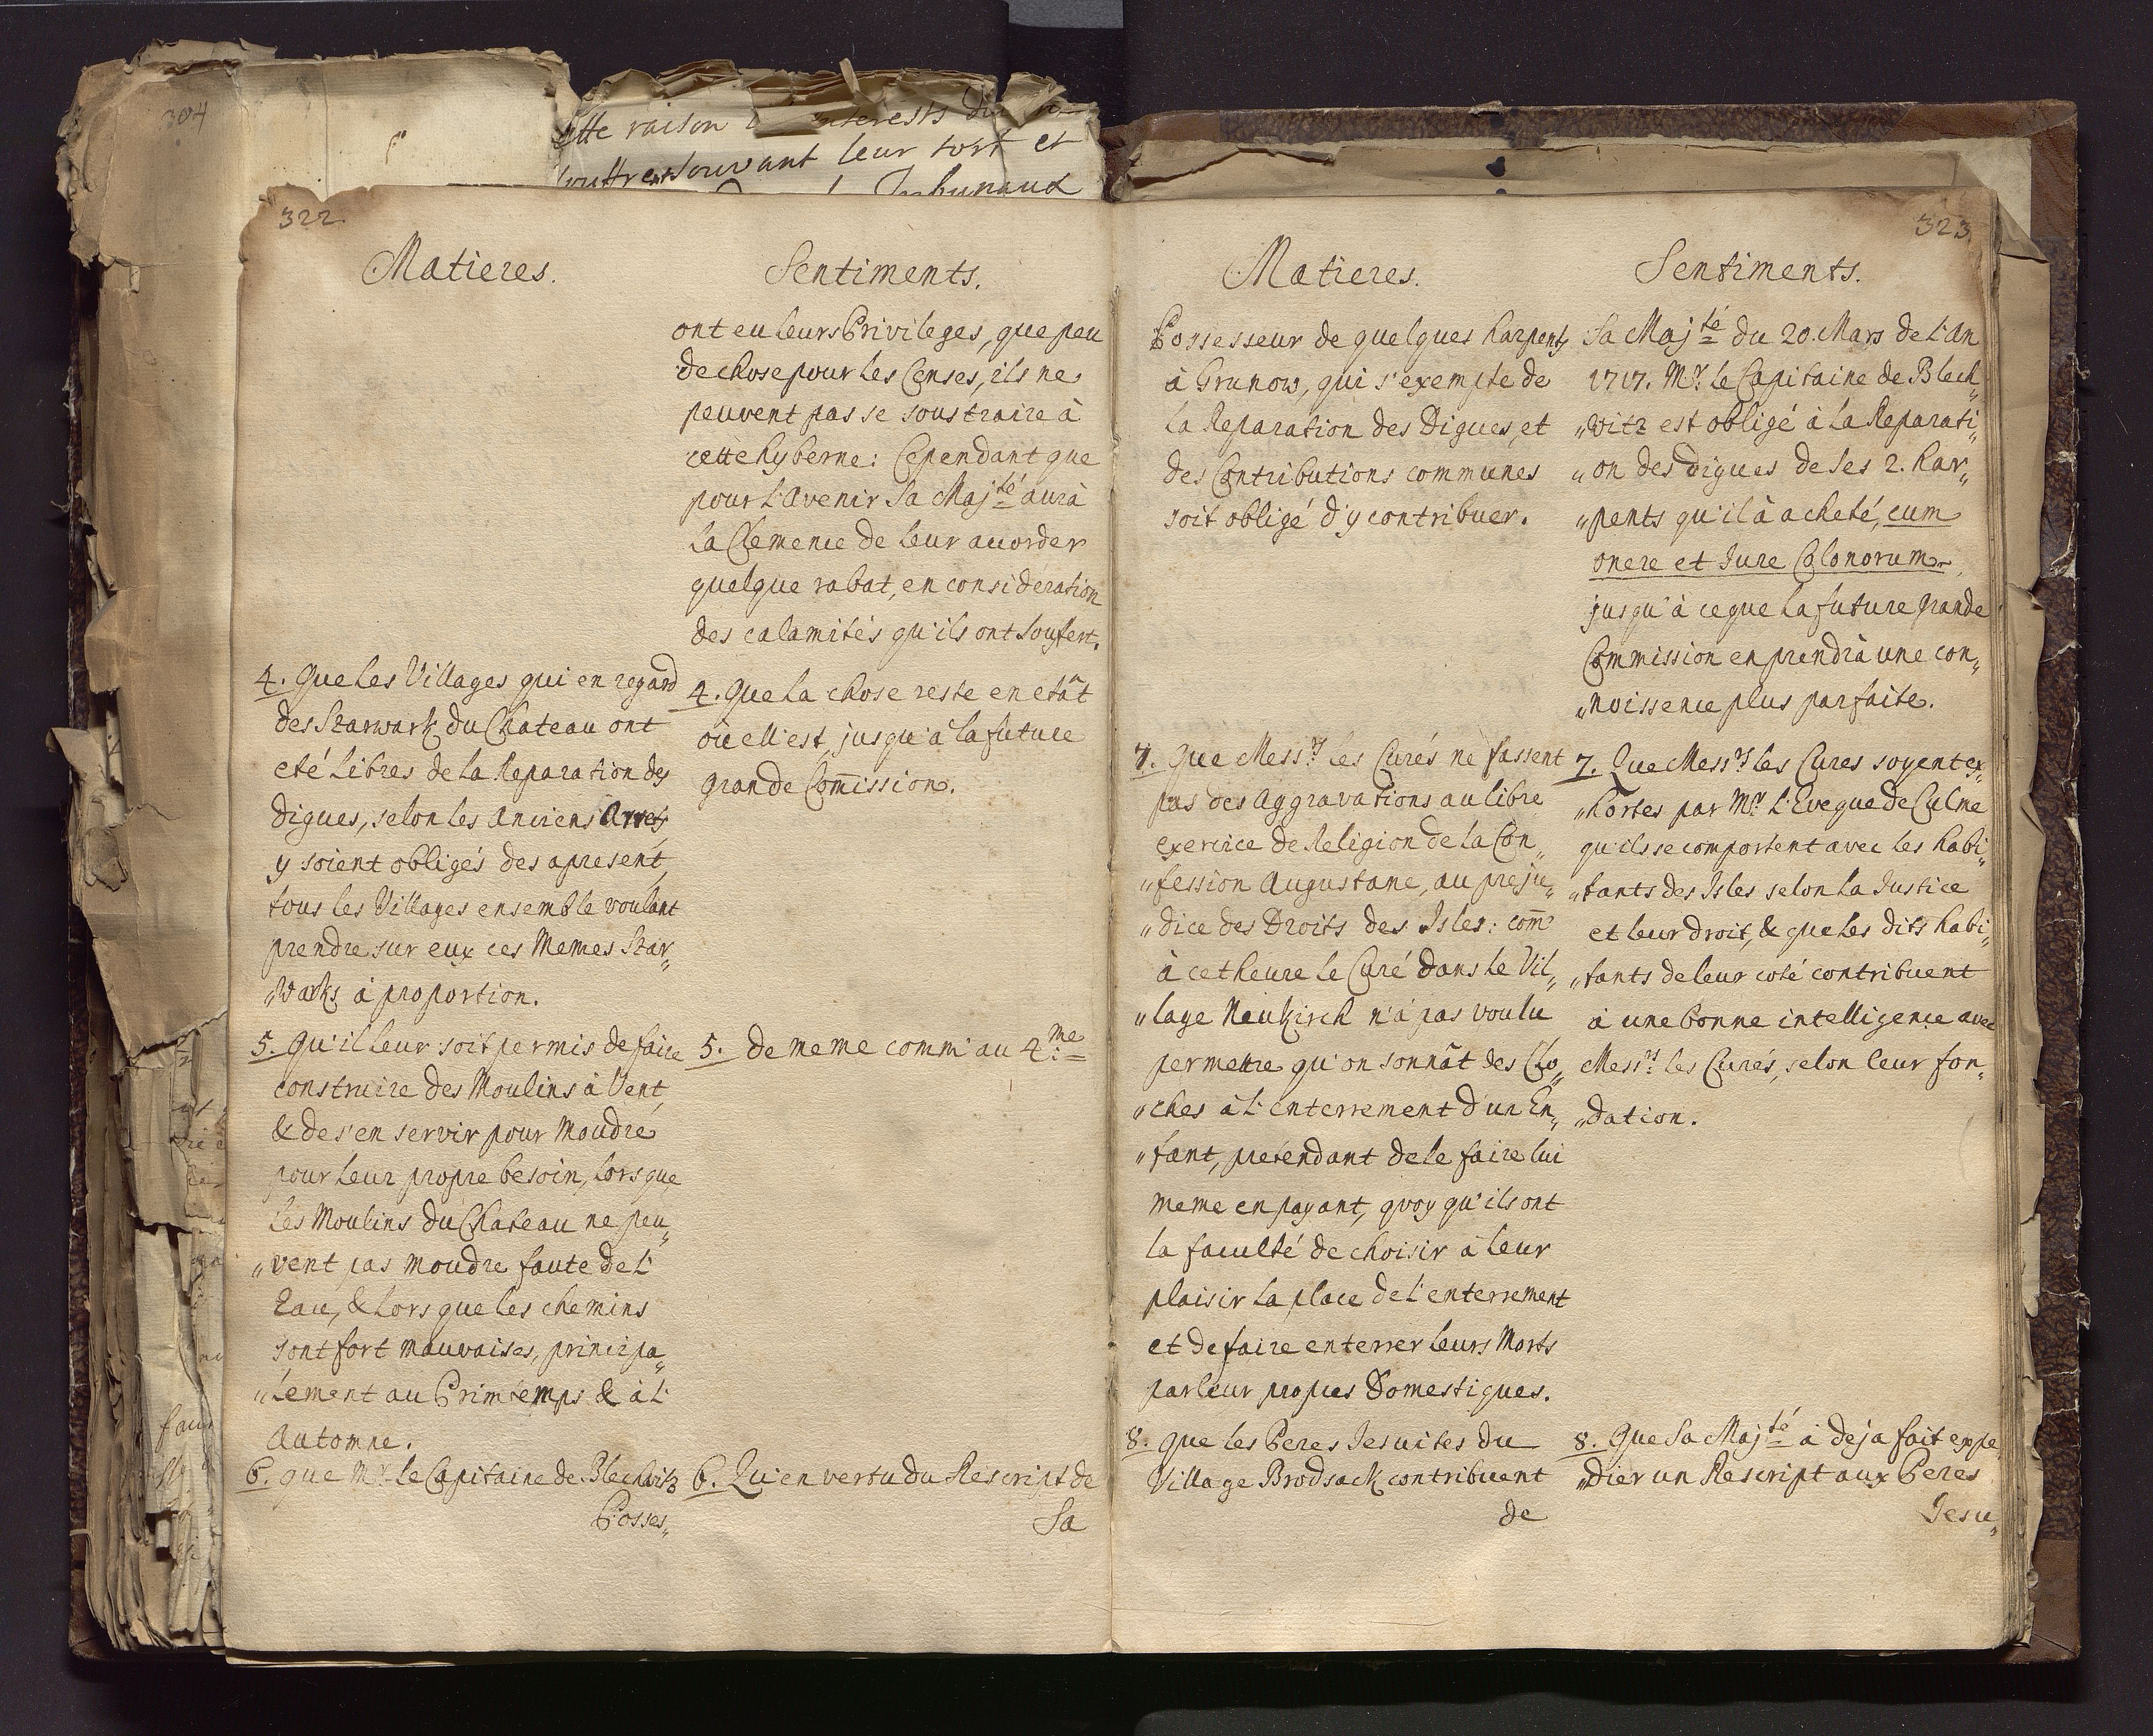 304
cette raison
souvant leur tort et
322.
Matieres.
Sentiments.
ont eu leurs Privileges, que peu
de chose pour les Censes, ils ne
peuvent pas se soustraire à
cette hyberne: Cependant que
pour l'Avenir Sa Maj:té aurà
la Clemence de leur accorder
quelque rabat, en consideration
des calamités qu'ils ont soufert.
4. Que les Villages qui en regard
des Szarwark du Chateau ont
eté libres de la Reparation des
digues, selon les Anciens Arrets
y soient obligés des apresent,
tous les Villages ensemble voulant
prendre sur eux ces Memes Szar„
„warks à proportion.
4. Que la chose reste en etât
où ell'est, jusqu'à la future
grande Com̄ission.
5. Qu'il leur soit permis de faire
construire des Moulins à Vent,
& de s'en servir pour Moudre
pour leur propre besoin, lorsque
les Moulins du Chateau ne peu„
„vent pas Moudre faute de l'
Eau, & lorsque les chemins
sont fort mauvaises, principa„
„lement au Printemps & à l'
Automne.
5. de meme comm' au 4:me
6. que Mr. le Capitaine de Blechwitz
Posses„
6. Qu'en vertu du Rescript de
Sa
323.
Matieres.
Sentiments.
Possesseur de quelques harpents
à Grunow, qui s'exempte de
la Reparation des Digues, et
des Contributions communes
soit obligé d'y contribuer.
Sa Maj:té du 20. Mars de l'An
1717. Mr. le Capitaine de Blech„
„witz est obligé à la Reparati„
„on des digues de ses 2. har„
„pents qu'il à acheté, cum
onere et Jure Colonorum,
jusqu'à ce que la future grande
Commission en prendrà une con„
„noissence plus parfaite.
7. Que Mess:rs les Curés ne fassent
pas des Aggravations au libre
exercice de Religion de la Con„
„fession Augustane, au preju„
„dice des Droits des Isles: com̄'
à cet heure le Curé dans le Vil„
„lage Neukirch n'à pas voulu
permettre qu'on sonnât des Clo„
„ches à l'enterrement d'un En„
„fant, pretendant de le faire lui
meme en payant, quoy qu'ils ont
la faculté de choisir à leur
plaisir la place de l'enterrement
et de faire enterrer leurs Morts
par leur propres Domestiques.
7. Que Mess:rs les Cures soyent ex„
„hortes par Mr. l'Eveque de Culme
qu'ils se comportent avec les habi„
„tants des Isles selon la Justice
et leur droit, & que les dits habi„
„tants de leur coté contribuent
à une bonne intelligence avec
Mess:rs les Curés, selon leur fon„
„dation.
8. que les Peres Jesuites du
Village Brodsack contribuent
de
8. Que Sa Maj:té à deja fait expe
„dier un Rescript aux Peres
Jesu„